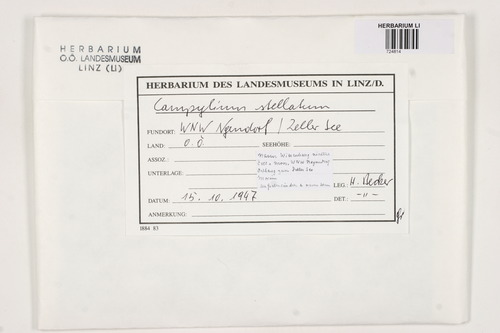 HERBARIUM
O.Ö. LANDESMUSEUM
LINZ (LI)
HERBARIUM LI
724814
HERBARIUM DES LANDESMUSEUMS IN LINZ/D.
Campylium stellatum
FUNDORT: WNW / Zeller See
LAND: O.Ö. SEEHÖHE:
ASSOZ.:
UNTERLAGE:
LEG.: H. Becker
DATUM: 15. 10. 1947 DET.: -"-
ANMERKUNG:
1884 83